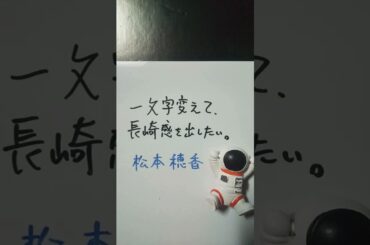 一文字変えて、
長崎感を出したい。
松本穂香